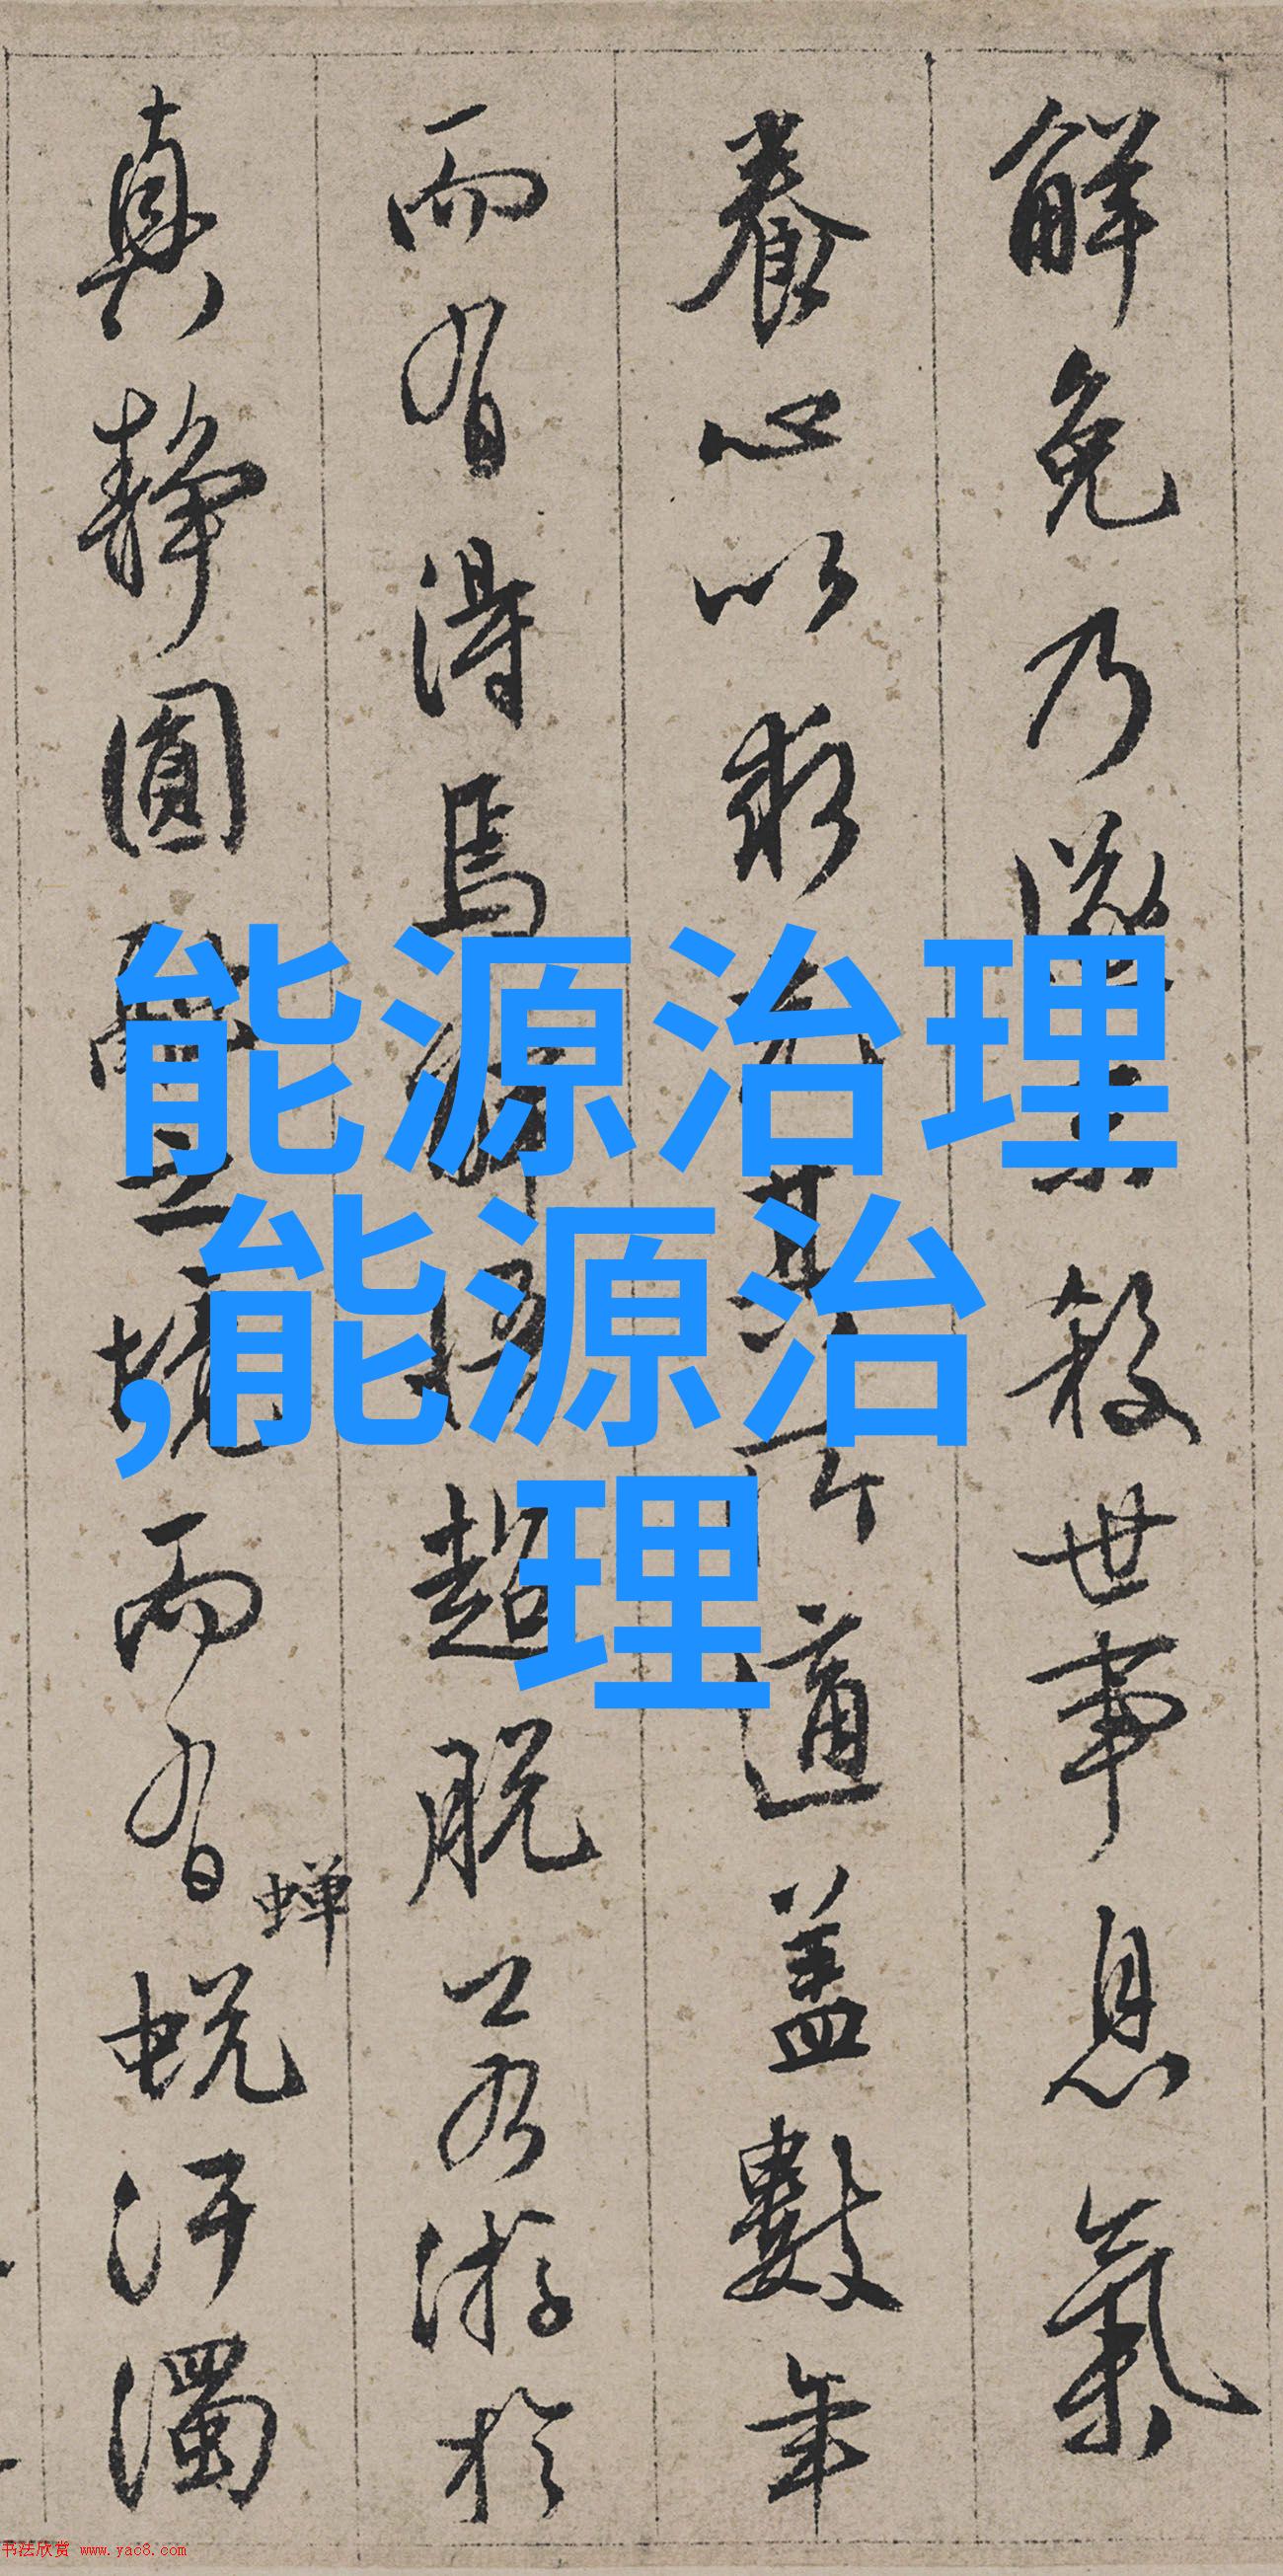 能源治理
,能源治
理
解免乃殺世事息氣
養心以求適蓋數年
而有得焉超脫若游於
真靜圓而有蟬蛻汙濁
书法欣赏 www.yac8.com